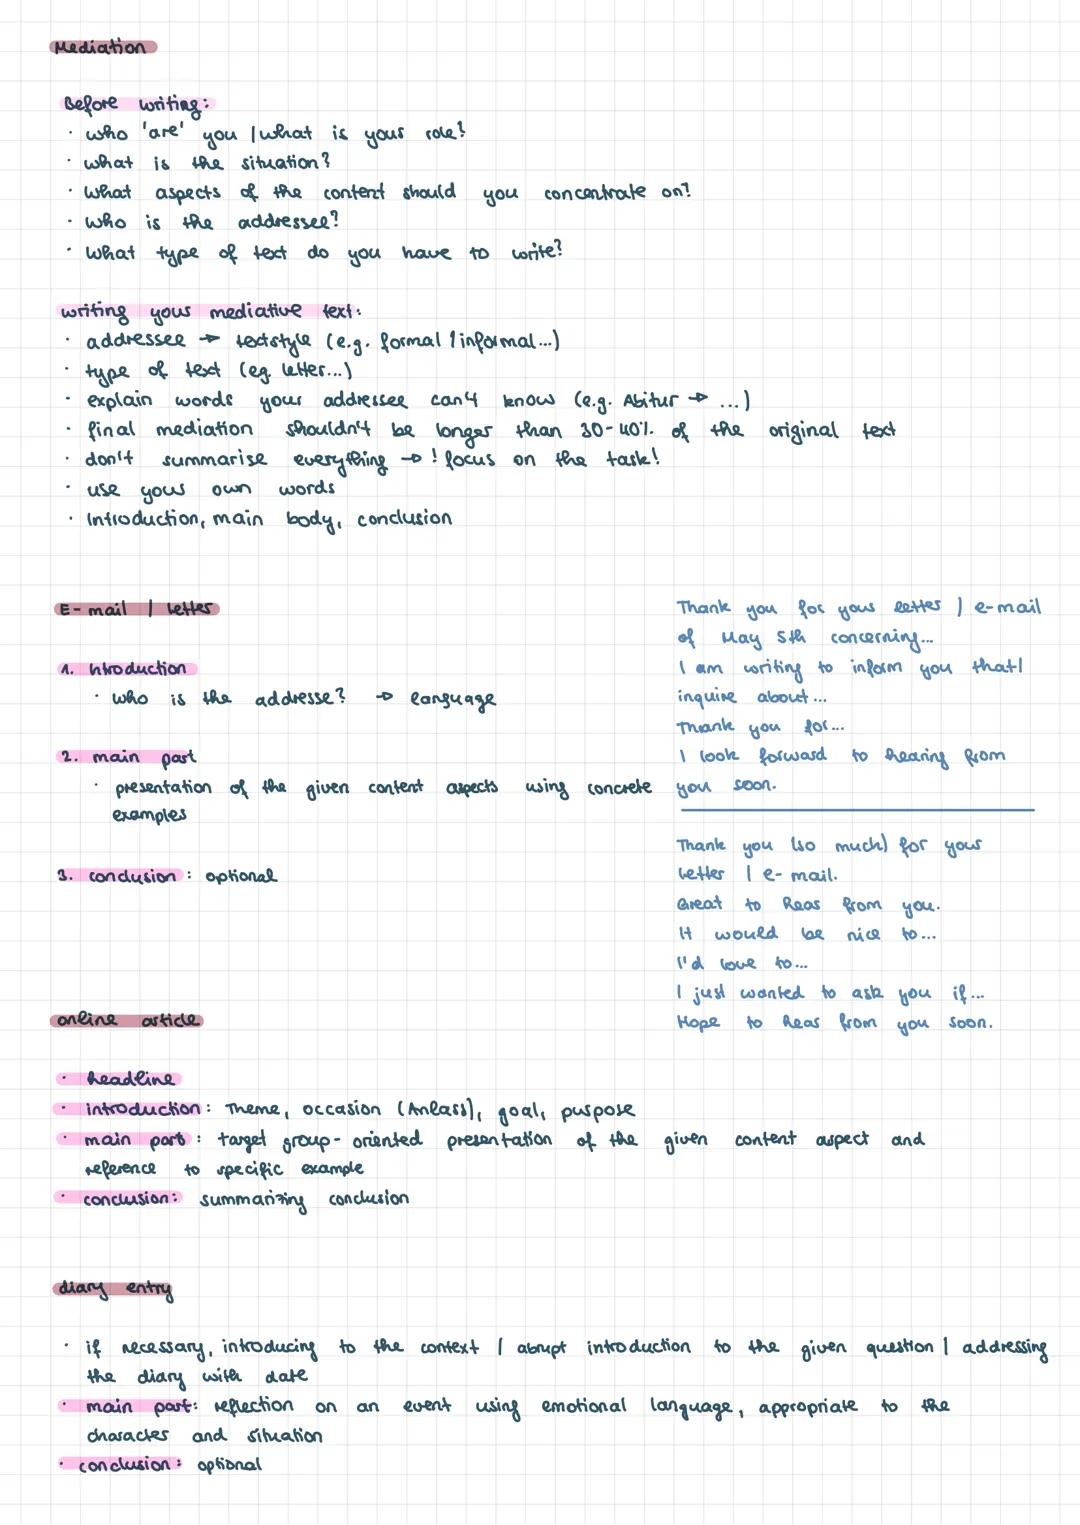 Mediation
Before writing:
· who 'are' you / what is your role?
· what is the situation?
· what aspects of the content should you concentrate on?
· who is the addressee?
· what type of text do you have to write?
writing your mediative text:
· addressee → textstyle (e.g. formal / informal...)
· type of text (eg. letter...)
· explain words your addressee can't know (e.g. Abitur → ...)
· final mediation shouldn't be longer than 30-40% of the original text
· don't summarise everything → ! focus on the task!
· use your own words
· Introduction, main body, conclusion
E-mail / letter
1. Introduction
· who is the addresse? → language
2. main part
· presentation of the given content aspects using concrete
examples
3. conclusion: optional
Thank you for your letter / e-mail
of May 5th concerning...
I am writing to inform you that/
inquire about...
Thank you for...
I look forward to hearing from
you soon.
Thank you (so much) for your
letter / e-mail.
Great to hear from you.
It would be nice to...
I'd love to...
I just wanted to ask you if...
Hope to hear from you soon.
online article
· headline
· introduction: Theme, occasion (Anlass), goal, purpose
· main part: target group-oriented presentation of the given content aspect and
reference to specific example
· conclusion: summarizing conclusion
diary entry
· if necessary, introducing to the context / abrupt introduction to the given question / addressing
the diary with date
· main part: reflection on an event using emotional language, appropriate to the
character and situation
· conclusion: optional